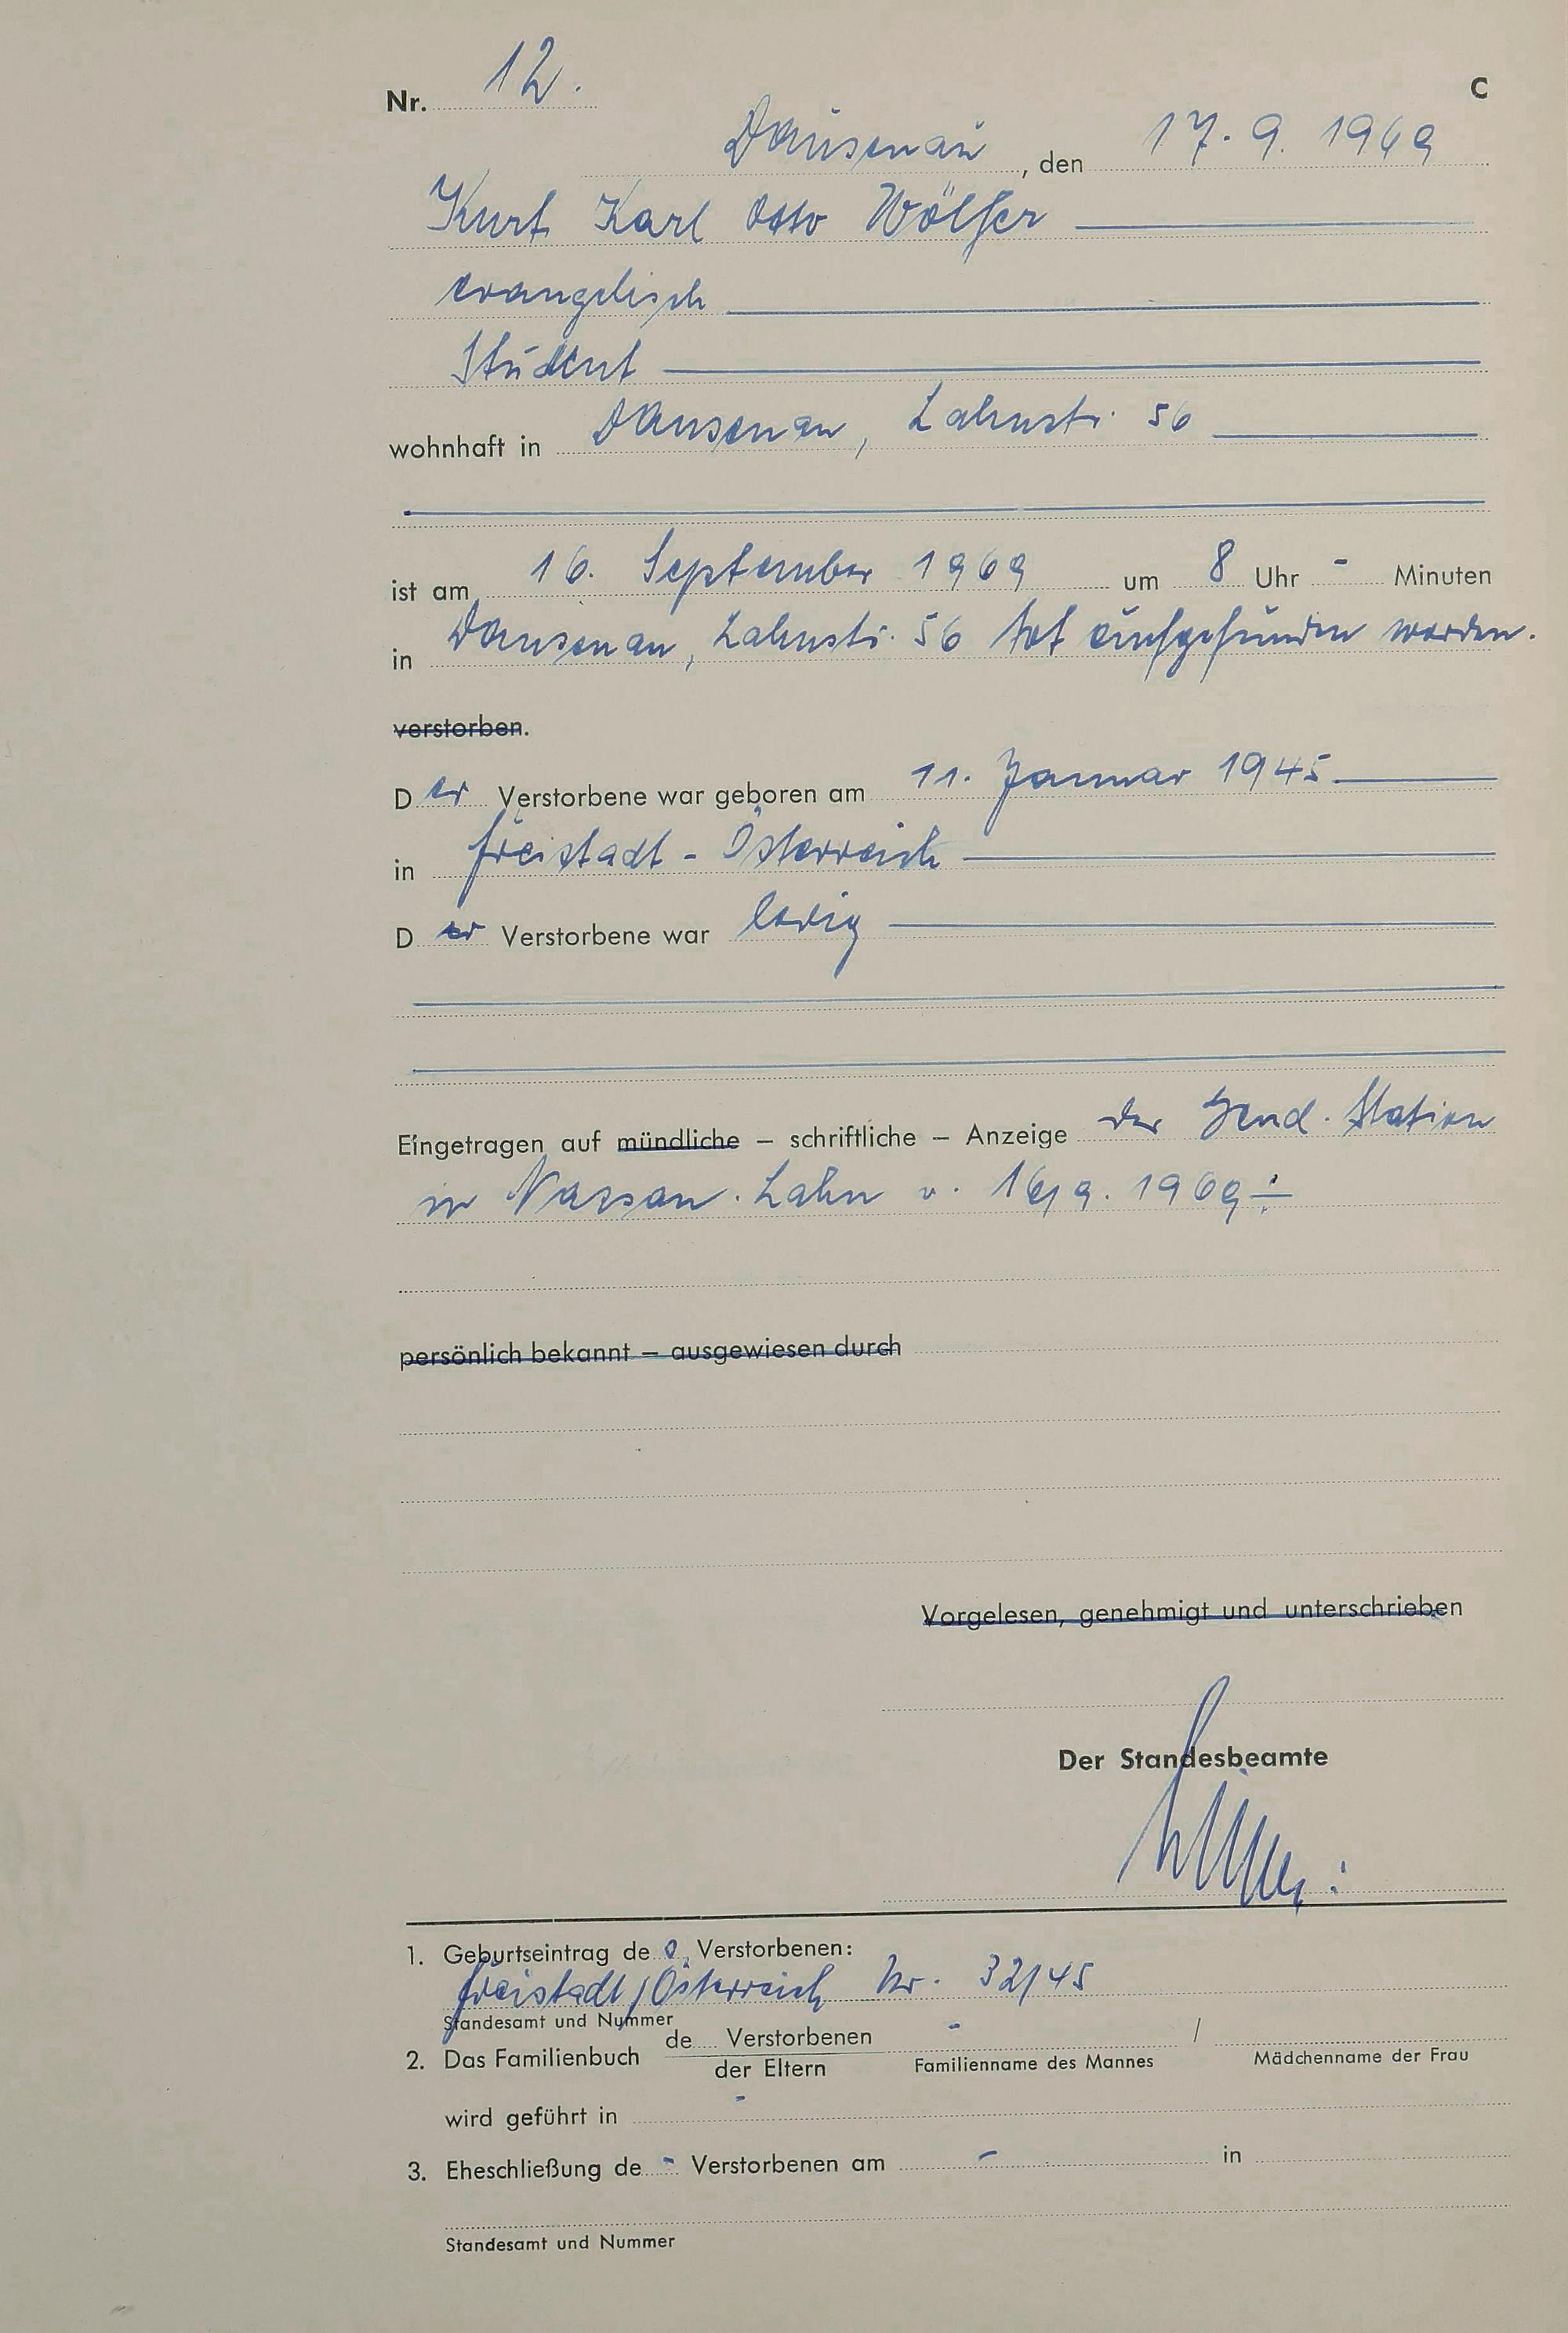 Nr. 12. C
Dausenau, den 17. 9. 1969
Kurt Karl Otto Wölfer
evangelisch
Student
wohnhaft in Dausenau, Lahnstr. 56
ist am 16. September 1969 um 8 Uhr - Minuten
in Dausenau, Lahnstr. 56 tot aufgefunden worden.
verstorben.
Der Verstorbene war geboren am 11. Januar 1945
in Freistadt - Österreich
Der Verstorbene war ledig
Eingetragen auf mündliche – schriftliche – Anzeige der Gend. Station
in Nassau. Lahn v. 16.9. 1969
persönlich bekannt – ausgewiesen durch
Vorgelesen, genehmigt und unterschrieben
Der Standesbeamte
1. Geburtseintrag de Verstorbenen:
Freistadt/Österreich Nr. 32/45
Standesamt und Nummer
de Verstorbenen - /
2. Das Familienbuch der Eltern Familienname des Mannes Mädchenname der Frau
wird geführt in -
3. Eheschließung de - Verstorbenen am - in
Standesamt und Nummer